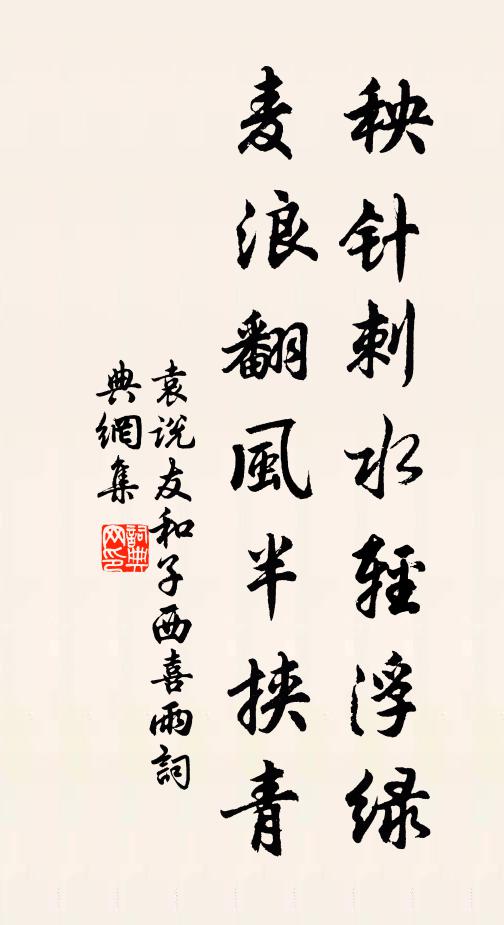 秧针刺水輕浮绿
麦浪翻風半挾青
袁说友和子西喜雨詞
典網集
詞典网印